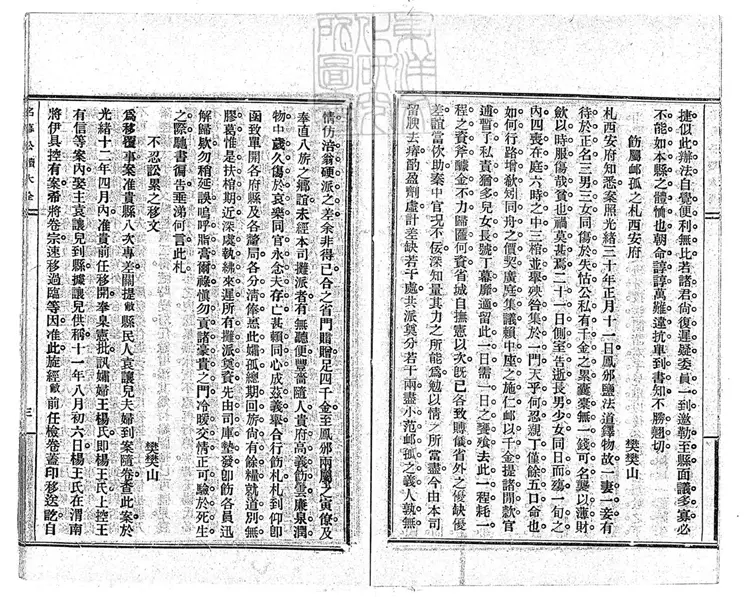 捷似此辦法自覺便利無比若諸君尙復遲疑委員一到邀勒王縣面議多寡必
不能如本縣之體恤也朝命諄諄萬難違抗車到書知不勝翹切
飭屬邮孤之札西安府
樊樊山
札西安府知悉案照光緖三十年正月十一日鳳邠鹽法道鐸物故一妻一妾有
待於正名三男三女同傷於失怙公私有千金之累囊橐無一錢可名襲以薄財
歛以時服傷哉貧也禍莫甚焉二十一日側室告逝長男少女同日而殤一旬之
內四喪在庭六時之中三棺並舉殃咎集於一門天乎何忍親丁僅餘五口命也
如何行路增欷矧同舟之價契廣庭集議賴中座之施仁邮以千金提諸開欵官
逋暫了私責猶多兒女長號丁幕廊通留此一日需一日之饔飱去此一程耗一
程之資斧釀金不力歸匶何資省城自撫憲以次旣已各致賻儀省外之優缺優
差誼當佽助秦中官况不佞深知量其力之所能爲勉以情之所當盡今由本司
留腴去瘠酌盈劑虛計差缺若干處共派奠分若干兩盡小范邮孤之義人孰無
情仿涪翁硬派之差余非得已合之省門賵贈足四千金至鳳邠兩屬之寅僚及
奉直八旂之鄉誼未經本司攤派者有無聽便豐嗇隨人貴府高義飭雲廉泉潤
物中歲久傷於哀樂同官永念夫存亡甚賴同心成茲義舉合行飭札札到仰卽
函致單開各府縣及各釐局各分清俸慭此孀孤總期回旂尙有餘糧就道別無
膠葛惟是扶棺期近深處執紼來遲所有攤派奠資先由司庫墊發卽飭各員迅
解歸欵勿稍延誤嗚呼脂膏爾祿愼勿貢諸豪貴之門冷暖交情正可驗於死生
之際聽書彌吿垂涕何言此札
不忍訟累之移文
樊樊山
爲移覆事案准貴縣八次專差關提敝縣民人袁讓兒夫婦到案隨卷查此案於
光緖十二年四月內准貴前任移開奉臬憲批訊孀婦王楊氏卽楊王氏上控王
有信等案內娶主袁讓兒到縣據讓兒供稱十一年八月初六日楊王氏在渭南
將伊具控有案希將卷宗速移過臨等因准此旋經敝前任檢卷蓋印移送訖自
名幕公牘大全
三